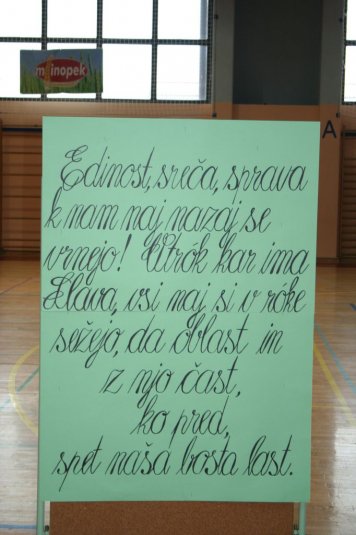 mlinopek
A
Edinost, sreča, sprava
k nam naj nazaj se
vrnejo! Otrók kar ima
Slava, vsi naj si v róke
sežejo, da oblast in
z njo čast,
ko pred,
spet naša bosta last.